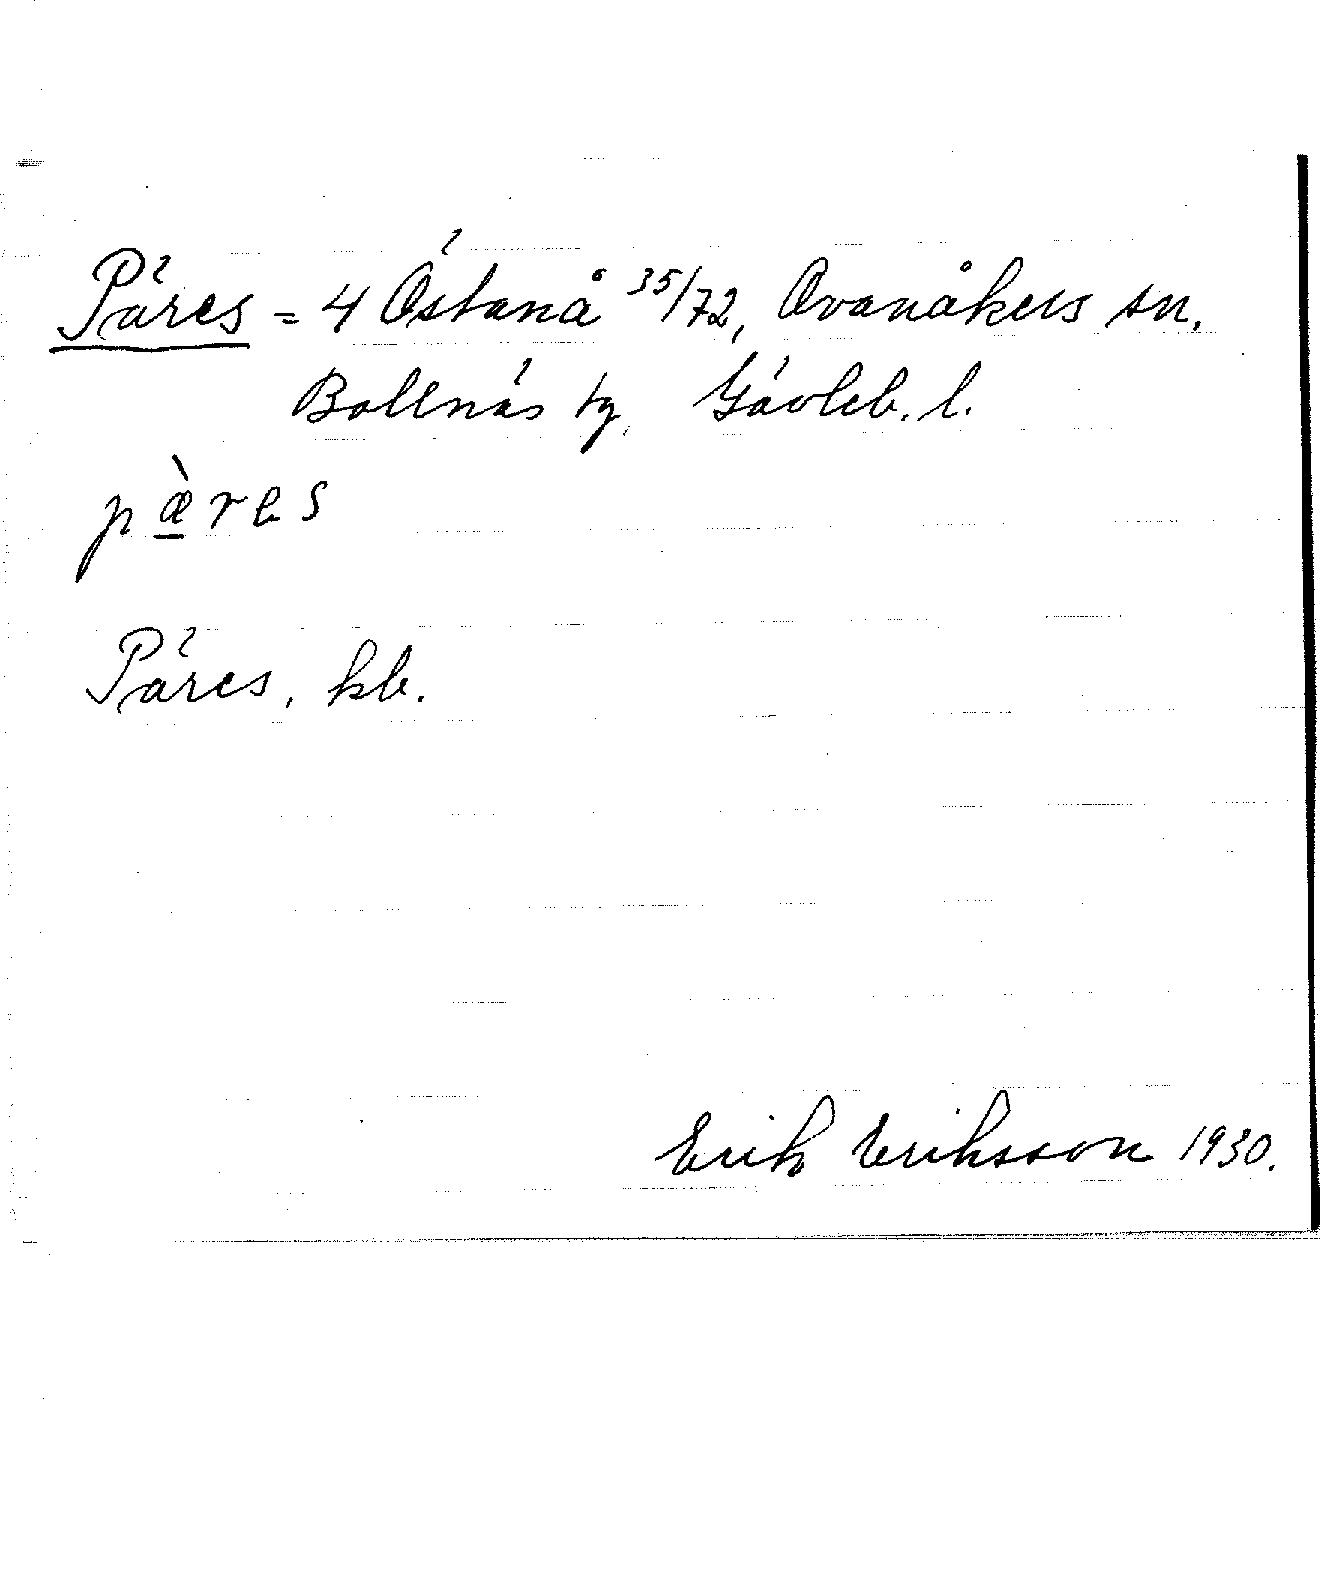 Päres = 4 Östanå 35/72, Ovanåkers sn.
Bollnäs tg, Gävleb. l.
pæ̀res
Päres, kb.
Erik Eriksson 1930.